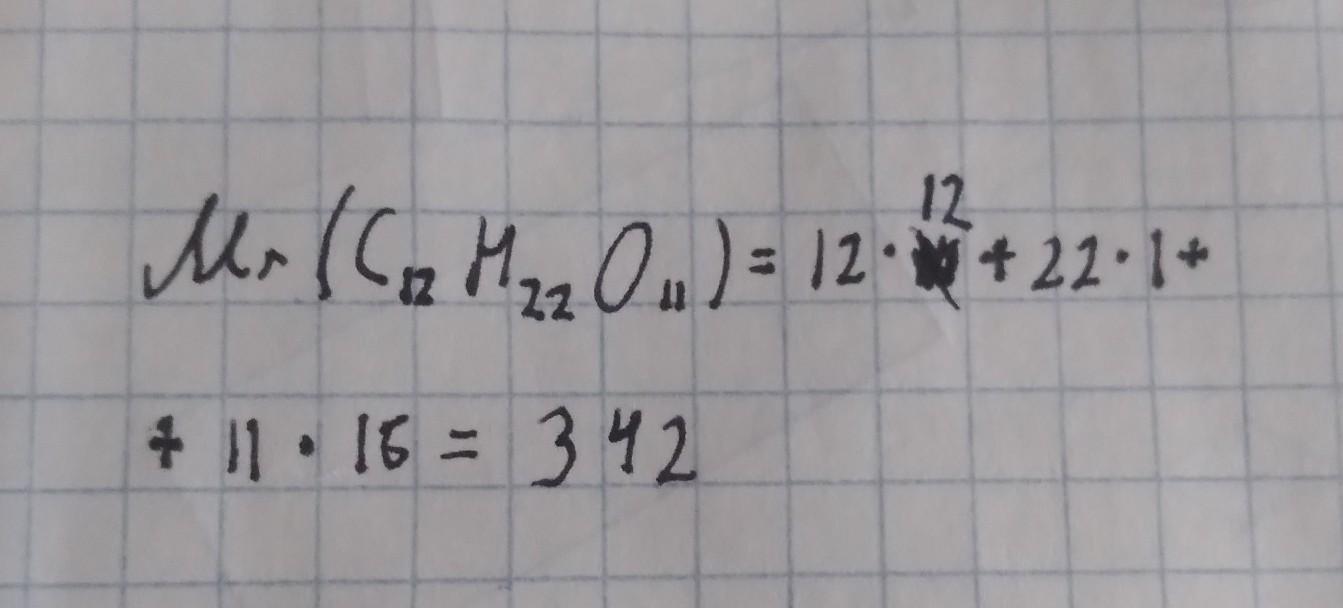 Mr (C₁₂H₂₂O₁₁) = 12 · 12 + 22 · 1 +
+ 11 · 16 = 342